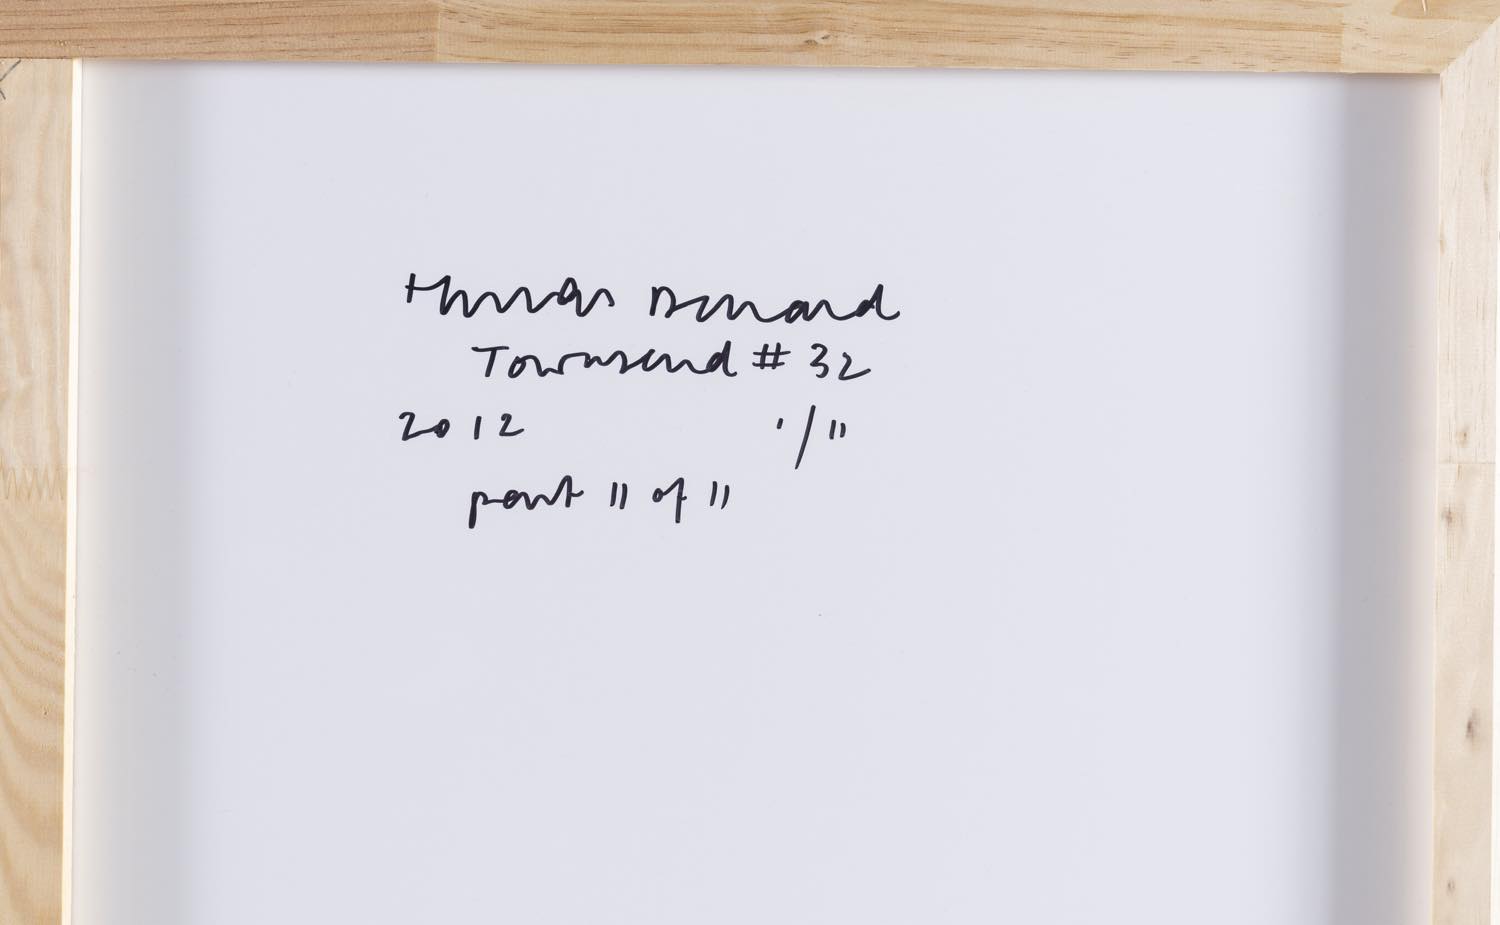 Thomas Demand
Townsend # 32
2012 1/11
part 11 of 11